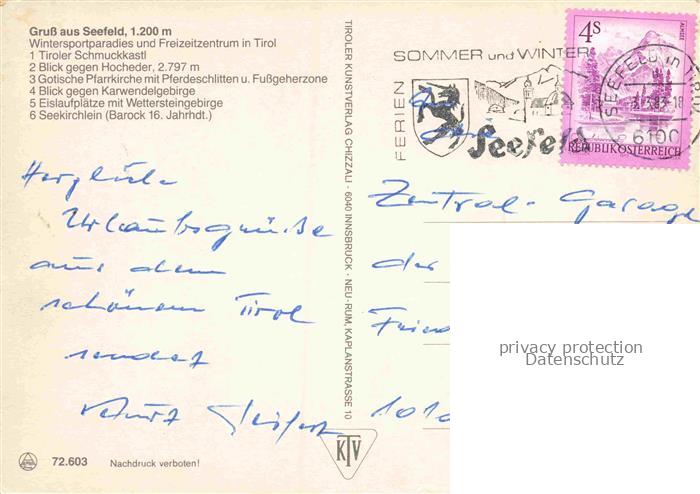 Gruß aus Seefeld, 1.200 m
Wintersportparadies und Freizeitzentrum in Tirol
1 Tiroler Schmuckkastl
2 Blick gegen Hocheder, 2.797 m
3 Gotische Pfarrkirche mit Pferdeschlitten u. Fußgeherzone
4 Blick gegen Karwendelgebirge
5 Eislaufplätze mit Wettersteingebirge
6 Seekirchlein (Barock 16. Jahrhdt.)
Herzliche
Urlaubsgrüße
aus dem
schönen Tirol
sendet
Seifert
72.603 Nachdruck verboten!
TIROLER KUNSTVERLAG CHIZZALI - 6040 INNSBRUCK - NEU-RUM, KAPLANSTRASSE 10
KTV
FERIEN
SOMMER und WINTER
Seefeld
4S
ALMSEE
REPUBLIK ÖSTERREICH
SEEFELD in TIROL
6100
An
Zentral-Garage
der
Fried
1010
privacy protection
Datenschutz